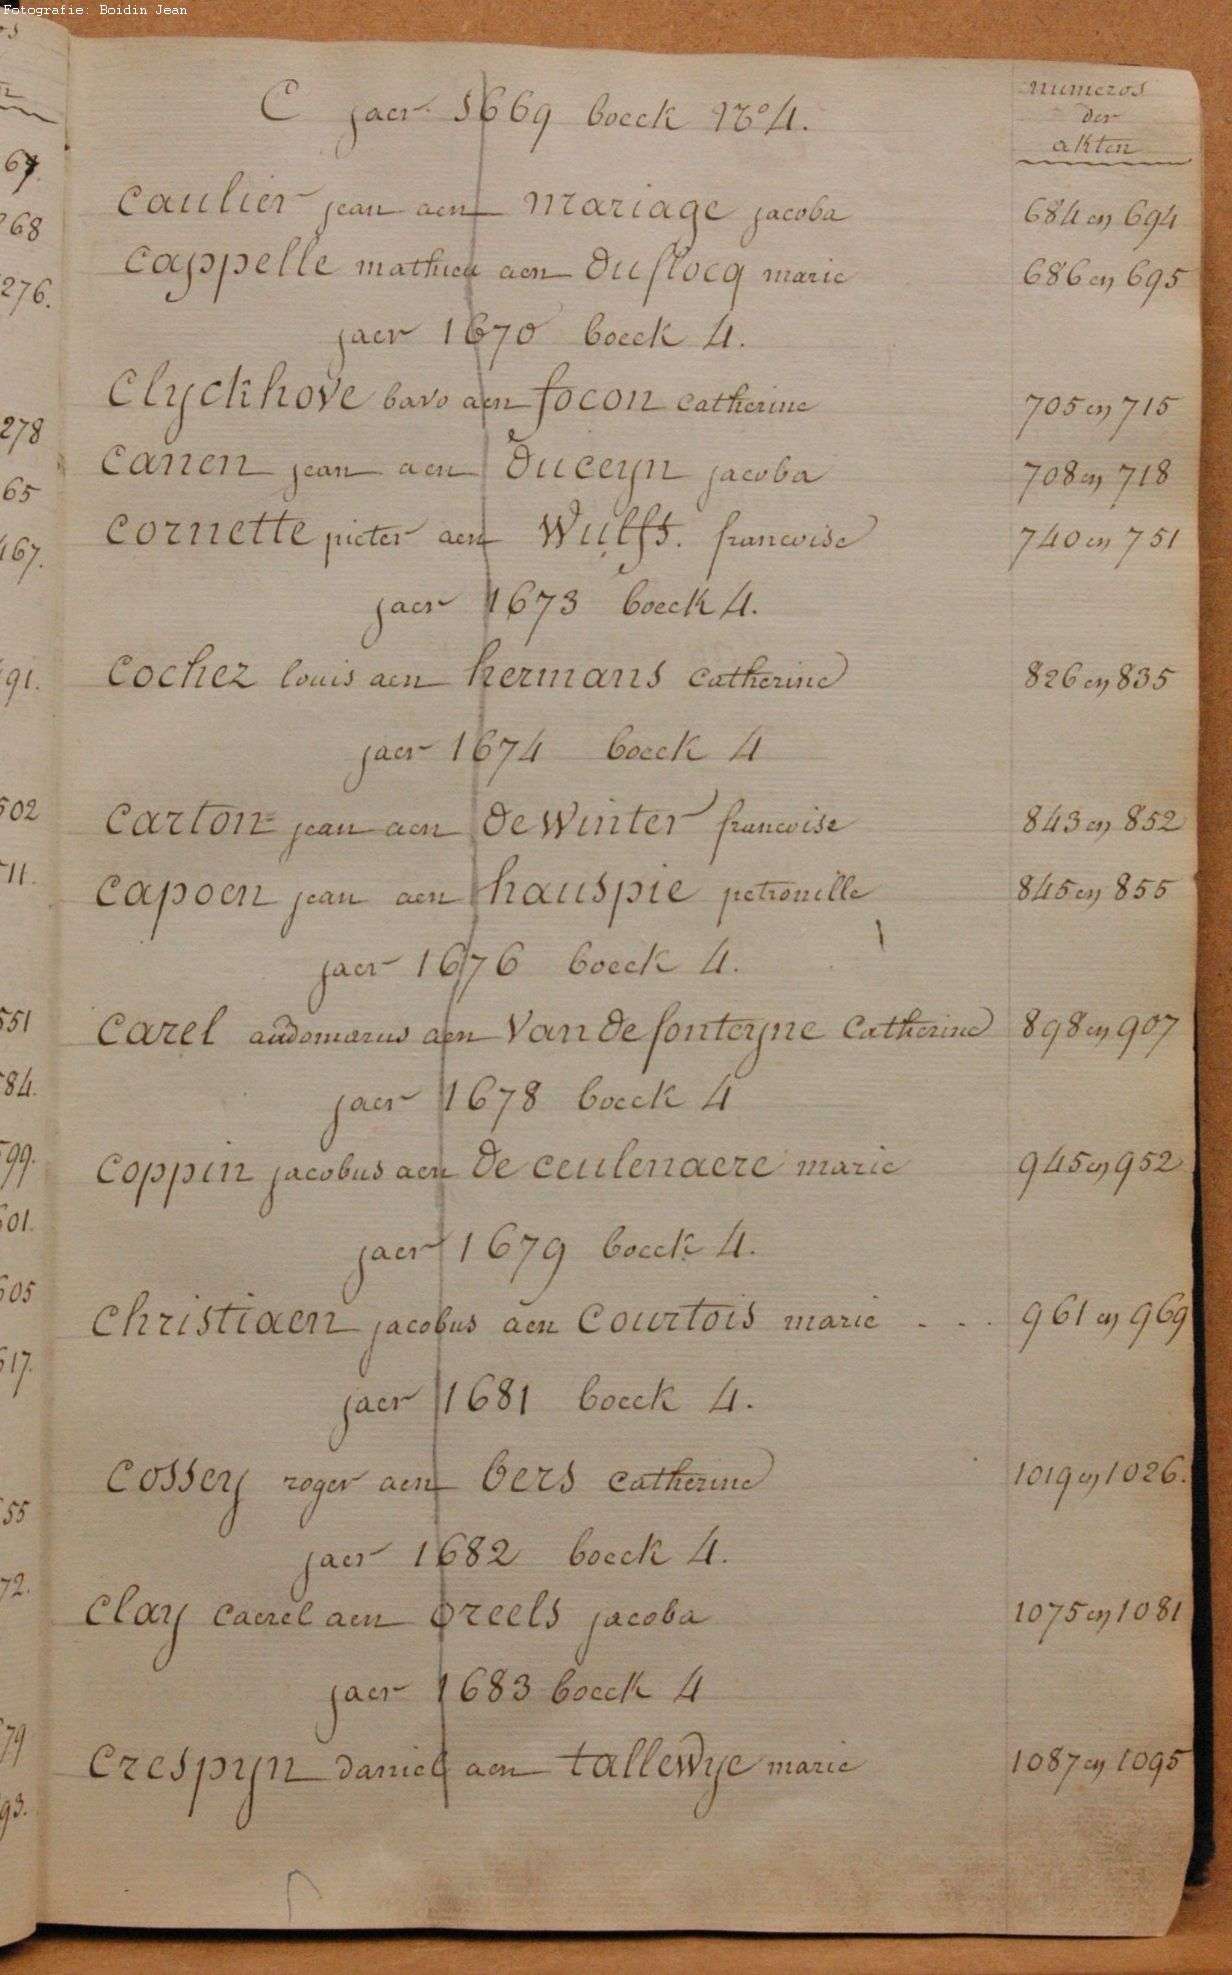 Fotografie: Boidin Jean
C jaer 1669 boeck No 4.
numeros
der
akten
Caulier jean aen mariage jacoba 684 en 694
Cappelle mathieu aen duflocq marie 686 en 695
jaer 1670 boeck 4.
Clyckhove bavo aen focon catherine 705 en 715
Canen jean aen duceyn jacoba 708 en 718
Cornette pieter aen Wulfs. francoise 740 en 751
jaer 1673 boeck 4.
Cochez louis aen hermans catherine 826 en 835
jaer 1674 boeck 4
Carton jean aen de winter francoise 843 en 852
Capoen jean aen hauspie petronille 845 en 855
jaer 1676 boeck 4.
Carel audomarus aen Van de fonteyne Catherine 898 en 907
jaer 1678 boeck 4
Coppin jacobus aen de ceulenaere marie 945 en 952
jaer 1679 boeck 4.
Christiaen jacobus aen Courtois marie . . . 961 en 969
jaer 1681 boeck 4.
Cossey roger aen bers catherine 1019 en 1026.
jaer 1682 boeck 4.
Clay Caerel aen oreels jacoba 1075 en 1081
jaer 1683 boeck 4
Crespyn daniel aen tallewye marie 1087 en 1095
68
276.
278
65
467.
91.
502
11.
551
84.
599.
601.
605
617.
55
72.
79
93.